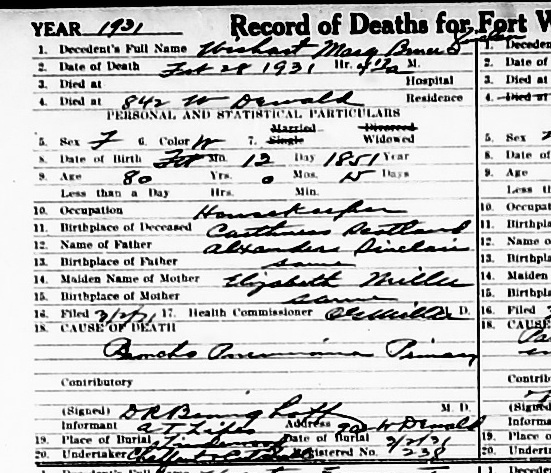 YEAR 1931 Record of Deaths for Fort W
1. Decedent's Full Name Wishart Marg
2. Date of Death Feb 28 1931 Hr. of M.
3. Died at Hospital
4. Died at 842 W Dewald Residence
PERSONAL AND STATISTICAL PARTICULARS
Married Divorced
5. Sex F 6. Color W 7. Single Widowed
8. Date of Birth Feb Mo. 12 Day 1851 Year
9. Age 80 Yrs. 0 Mos. 15 Days
Less than a Day Hrs. Min.
10. Occupation Housekeeper
11. Birthplace of Deceased Caithness Scotland
12. Name of Father Alxander Sinclair
13. Birthplace of Father same
14. Maiden Name of Mother Elizabeth Miller
15. Birthplace of Mother same
16. Filed 3/2/31 17. Health Commissioner D.
18. CAUSE OF DEATH
Broncho Pneumonia Primary
Contributory
(Signed) D R Benninghoff M. D.
Informant Address W Dewald
19. Place of Burial Lindenwood Date of Burial
20. Undertaker Registered No. 238
1. Deceden
2. Date of
3. Died at
4. Died at
5. Sex
8. Date of
9. Age
Less th
10. Occupat
11. Birthpla
12. Name o
13. Birthpla
14. Maiden
15. Birthpla
16. Filed
18. CAUSE
Contrib
(Signed
Informa
19. Place o
20. Undert